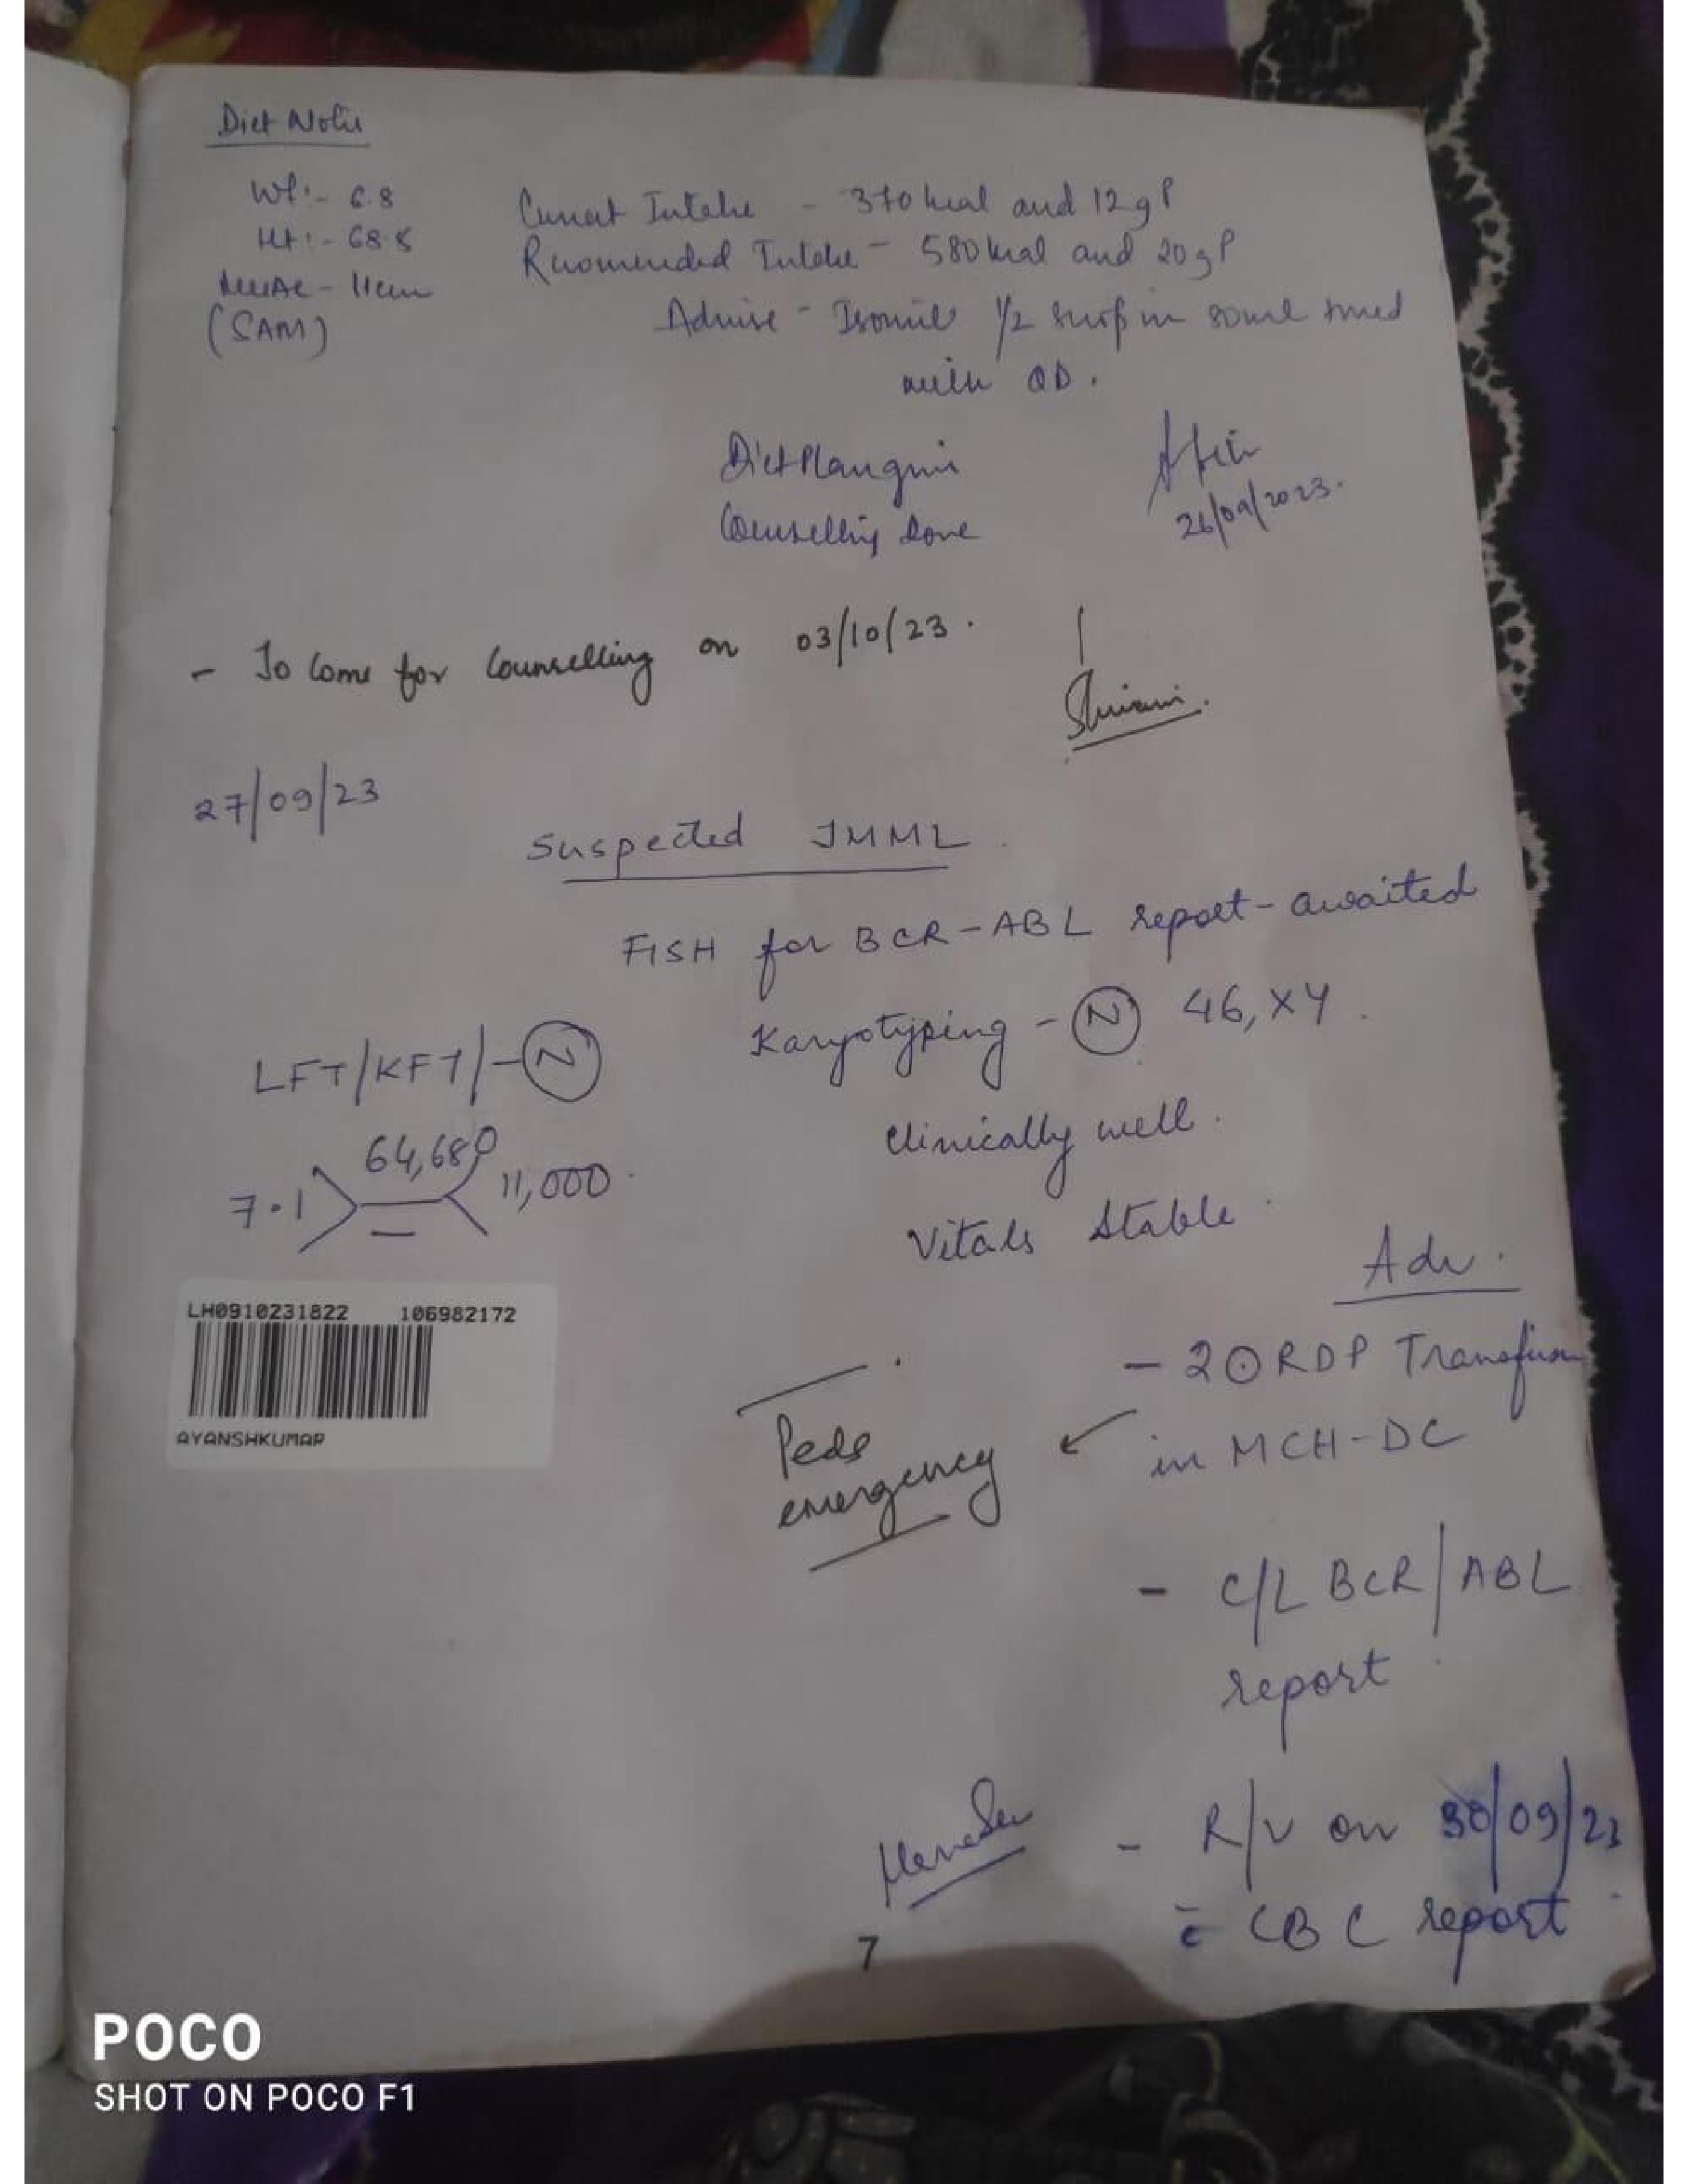 Diet Note
Wt:- 6.8
Ht:- 68.8
MUAC - 11cm
(SAM)
Current Intake - 370 kcal and 12g P
Recomended Intake - 580 kcal and 20g P
Advise - Isomil 1/2 scoop in 30ml
with OD.
Diet Plan given
Counselling done
26/09/2023.
- To Come for Counselling on 03/10/23.
Shivani.
27/09/23
Suspected JMML.
FISH for BCR-ABL report - awaited
Karyotyping - N 46,XY.
LFT/KFT/- N
Clinically well.
64,680
7.1
11,000
Vitals Stable
Adv.
LH0910231822 106982172
AYANSHKUMAR
- 2 O RDP Transfusion
in MCH-DC
Peds
emergency
- C/L BCR/ABL
report
- R/v on 30/09/23
c CBC report
7
POCO
SHOT ON POCO F1